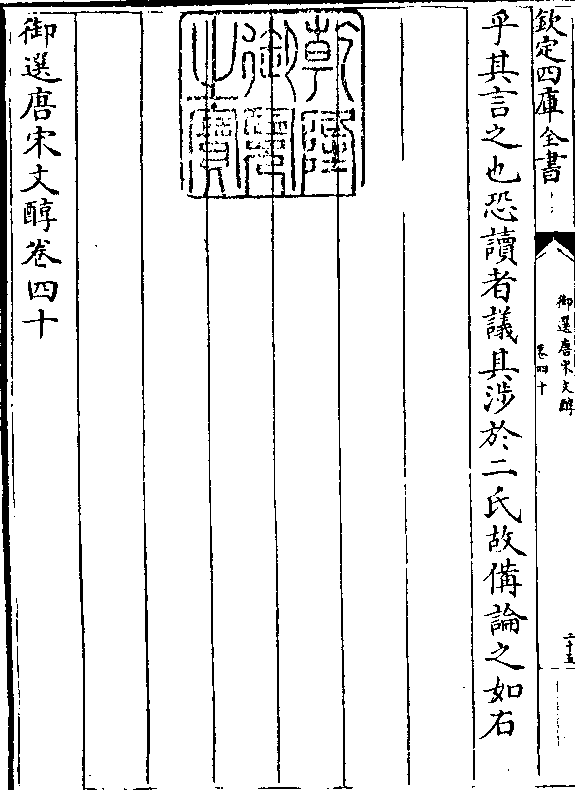 欽定四庫全書
御選唐宋文醇
卷四十
二十五
乎其言之也恐讀者議其涉於二氏故備論之如右
乾隆
御覽
之寳
御選唐宋文醇卷四十